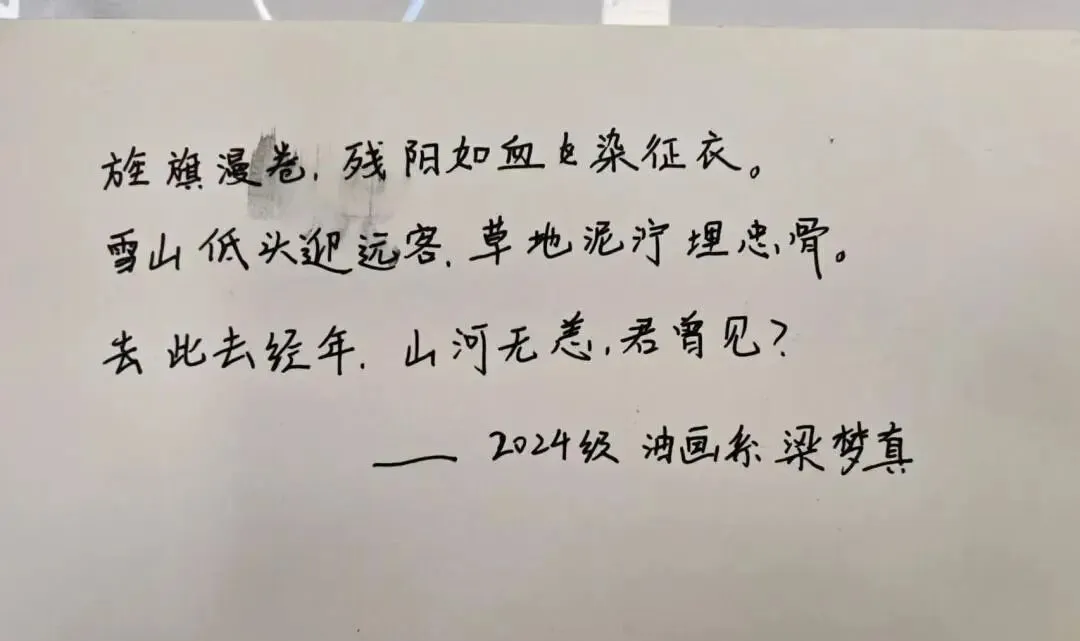 旌旗漫卷，残阳如血染征衣。
雪山低头迎远客，草地泥泞埋忠骨。
去此去经年，山河无恙，君曾见？
——2024级 油画系 梁梦真